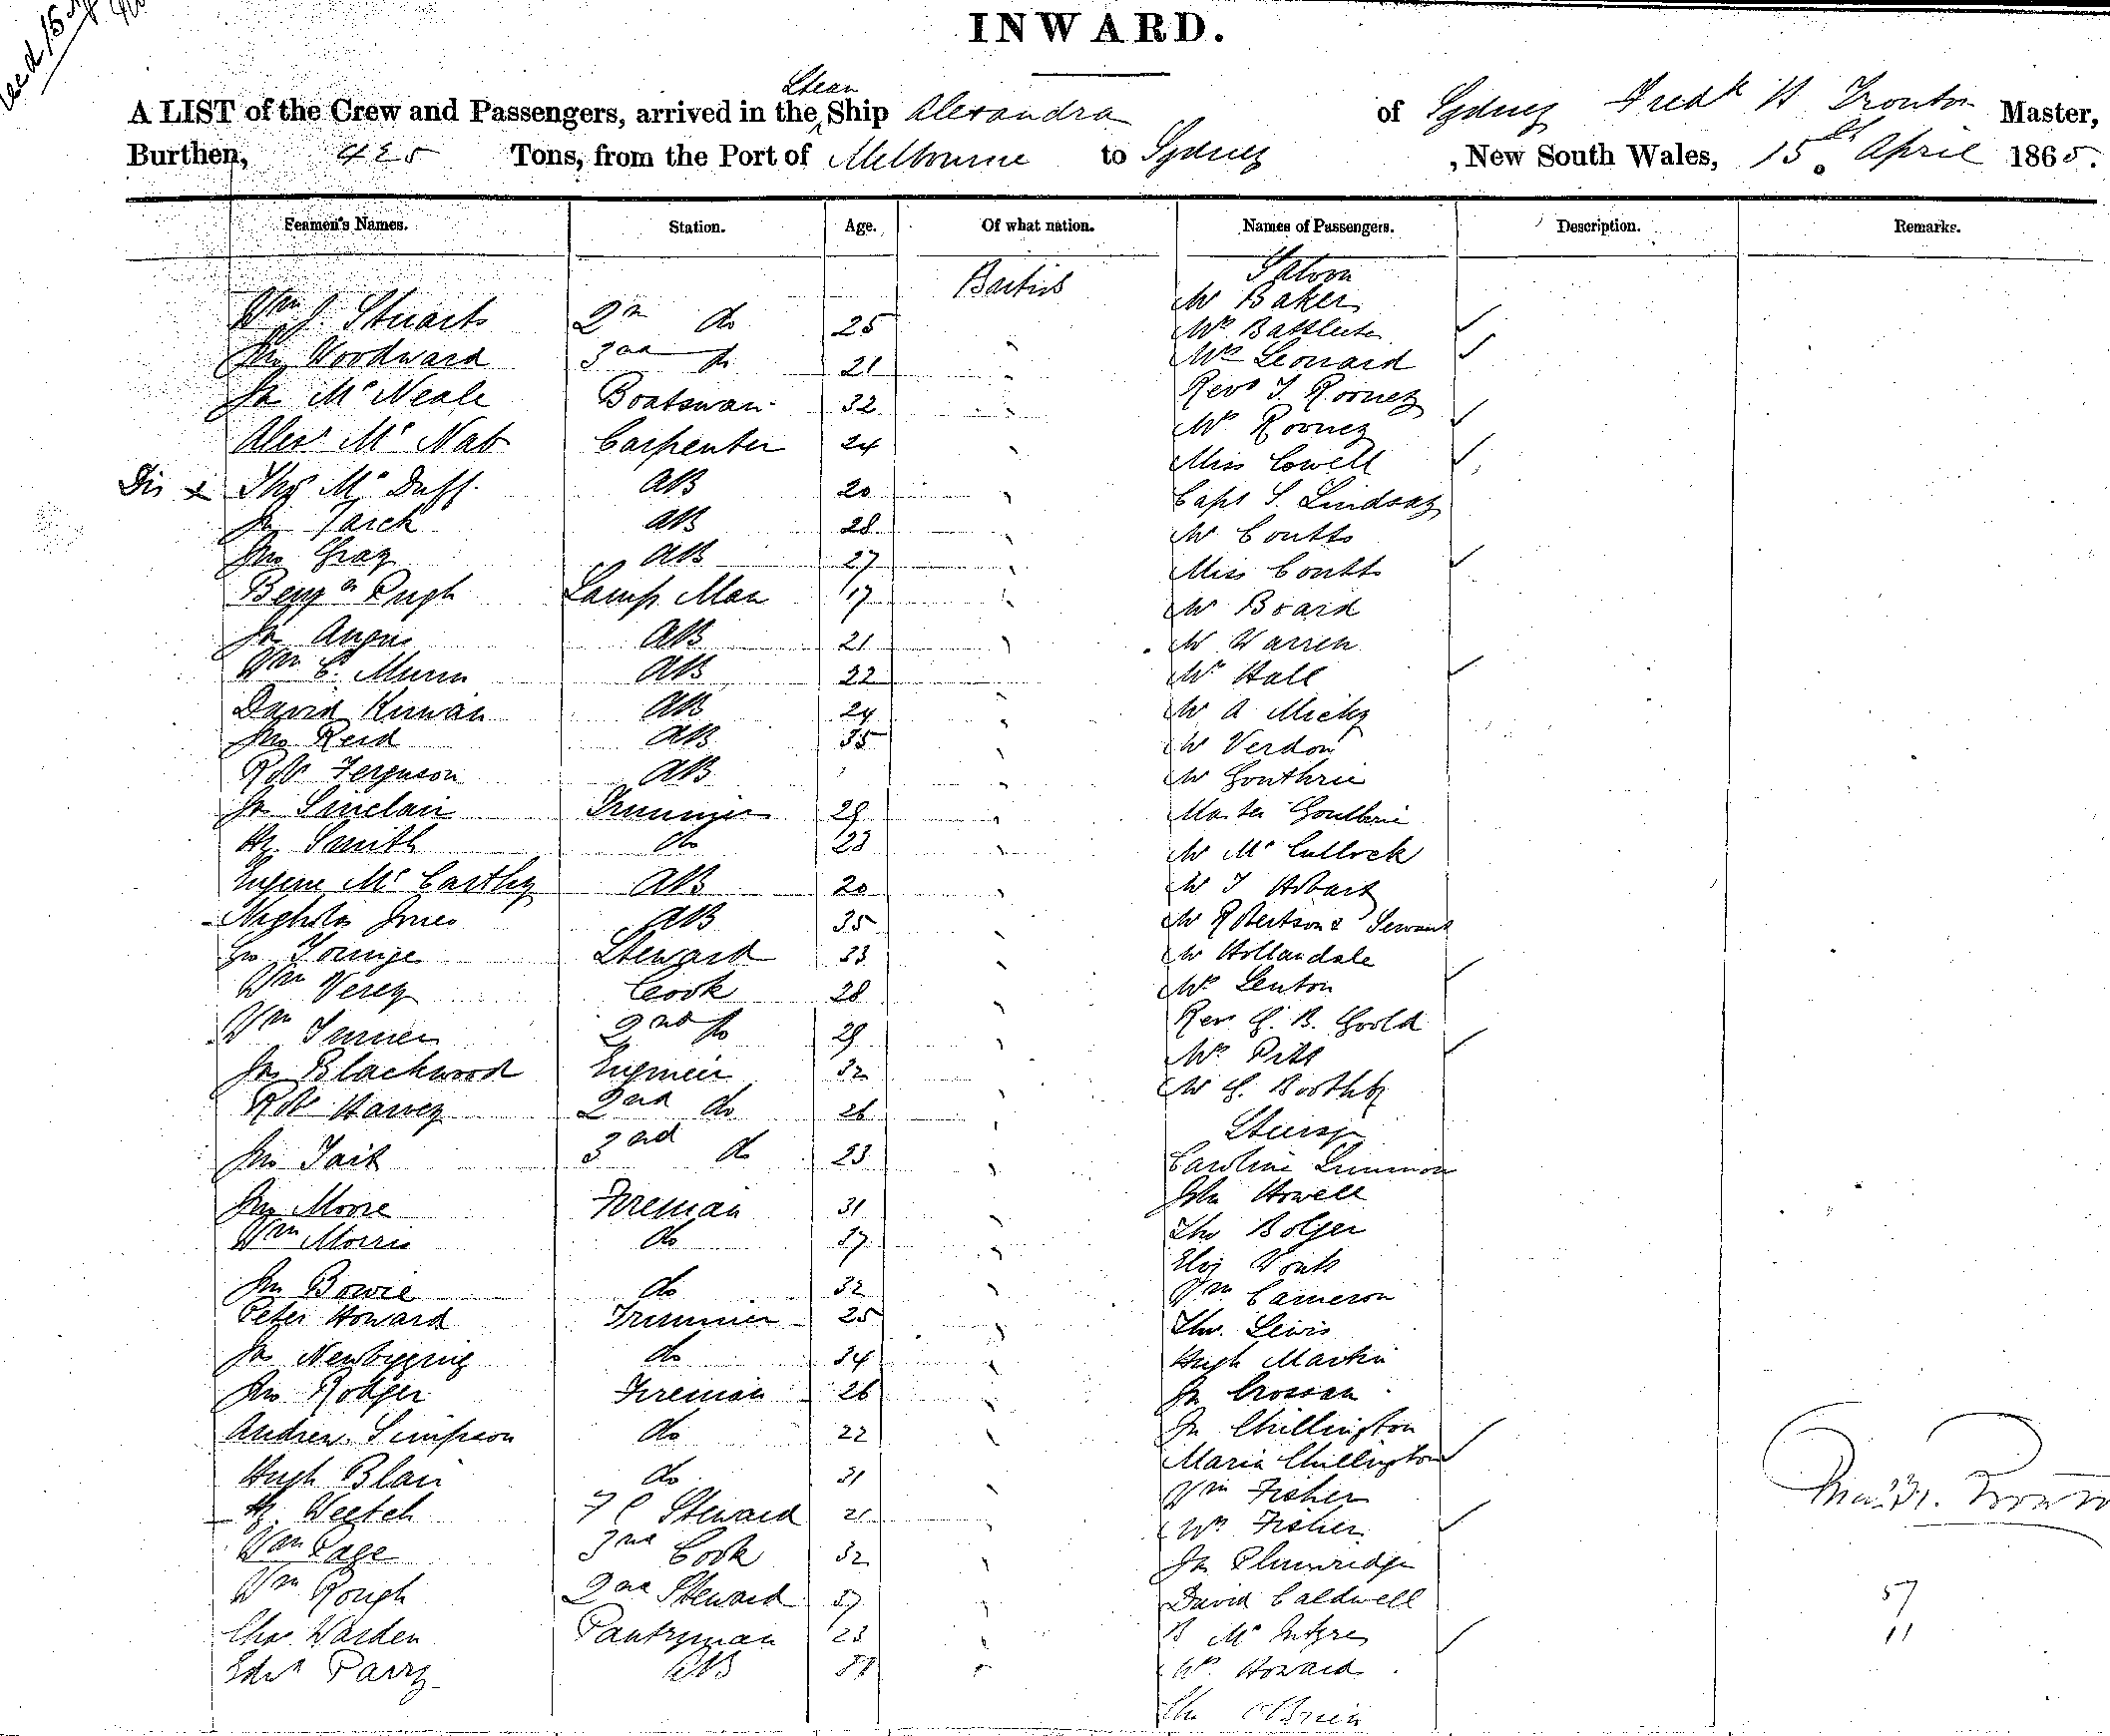 INWARD.
Steam
A LIST of the Crew and Passengers, arrived in the Ship Alexandra of Sydney Fredk H Trouton Master,
Burthen, 425 Tons, from the Port of Melbourne to Sydney , New South Wales, 15 April 1865.
Seamen's Names. Station. Age. Of what nation. Names of Passengers. Description. Remarks.
British Saloon
Mr Baker
Wm J. Stuart 2n do 25
Jno Woodward 3rd do 21 Mrs Leonard
Jn McNeale Boatswan 32 Revd T. Rooney
Alexr McNab Carpenter 24 Mrs Rooney
Miss Cowell
Dis x Thos McDuff AB 20 Capt S. Lindsay
Jn AB 28 Mr Coutts
Jno Gray AB 27 Miss Coutts
Benjn Pugh Lamp Man 17 Mr Board
Jn Angus AB 21 Mr Warren
Wm C. Munn AB 22 Mrs Hall
David Kirwan AB 24 Mr A
Jno Reid AB 35 Mr Verdon
Robt Ferguson AB Mr Gouthrie
Jn Sinclair Trimmer 29 Master Gouthrie
Hy. Smith do 23 Mr McCullock
Eugene McCarthy AB 20 Mr T Hobart
Jones AB 35 Mr Robertson & Servant
Younge Steward 33 Mr Hollandale
Wm Verey Cook 28 Mrs Lenton
Wm 2nd do 29 Rev G. B. Goold
Mrs Pitt
Jas Blackwood Engineer 32 Mr G. Boothby
Robt Harvey 2nd do 26
Jno Tait 3rd do 23 Caroline
Jno Moore Fireman 31 John Howell
Wm Morris do 37 Tho Bolger
Eliz
Jno Bowie do 32 Wm Cameron
Peter Howard Trimmer 25 Tho. Lewis
Jas Newbigging do 34 Hugh Martin
Jno Rodger Fireman 26 Jn Crossan
Andrew Simpson do 22 Jn Chillington
Maria Chillington
Hugh Blair do 31 Wm Fisher
Hy. Weetch F C Steward 21 Mrs Fisher
Wm Page 3rd Cook 32 Jn Plumridge
Wm Rough 2nd Steward 37 David Caldwell 57
Chas Warden Pantryman 23 B McIntyre 11
Edwd Parry AB Mrs Howard
Tho OBrien